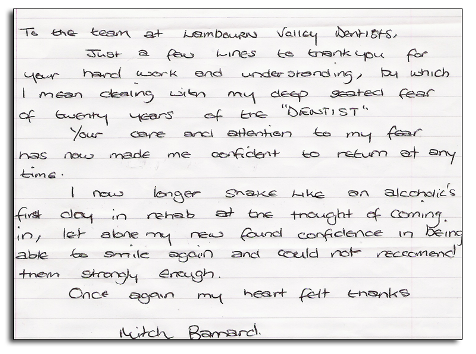 To the team at Lambourn Valley Dentists,
Just a few lines to thankyou for
your hard work and understanding, by which
I mean dealing with my deep seated fear
of twenty years of the "DENTIST"
Your care and attention to my fear
has now made me confident to return at any
time.
I now longer shake like an alcoholic's
first day in rehab at the thought of coming
in, let alone my new found confidence in being
able to smile again and could not reccomend
them strongly enough.
Once again my heart felt thanks
Mitch Barnard.